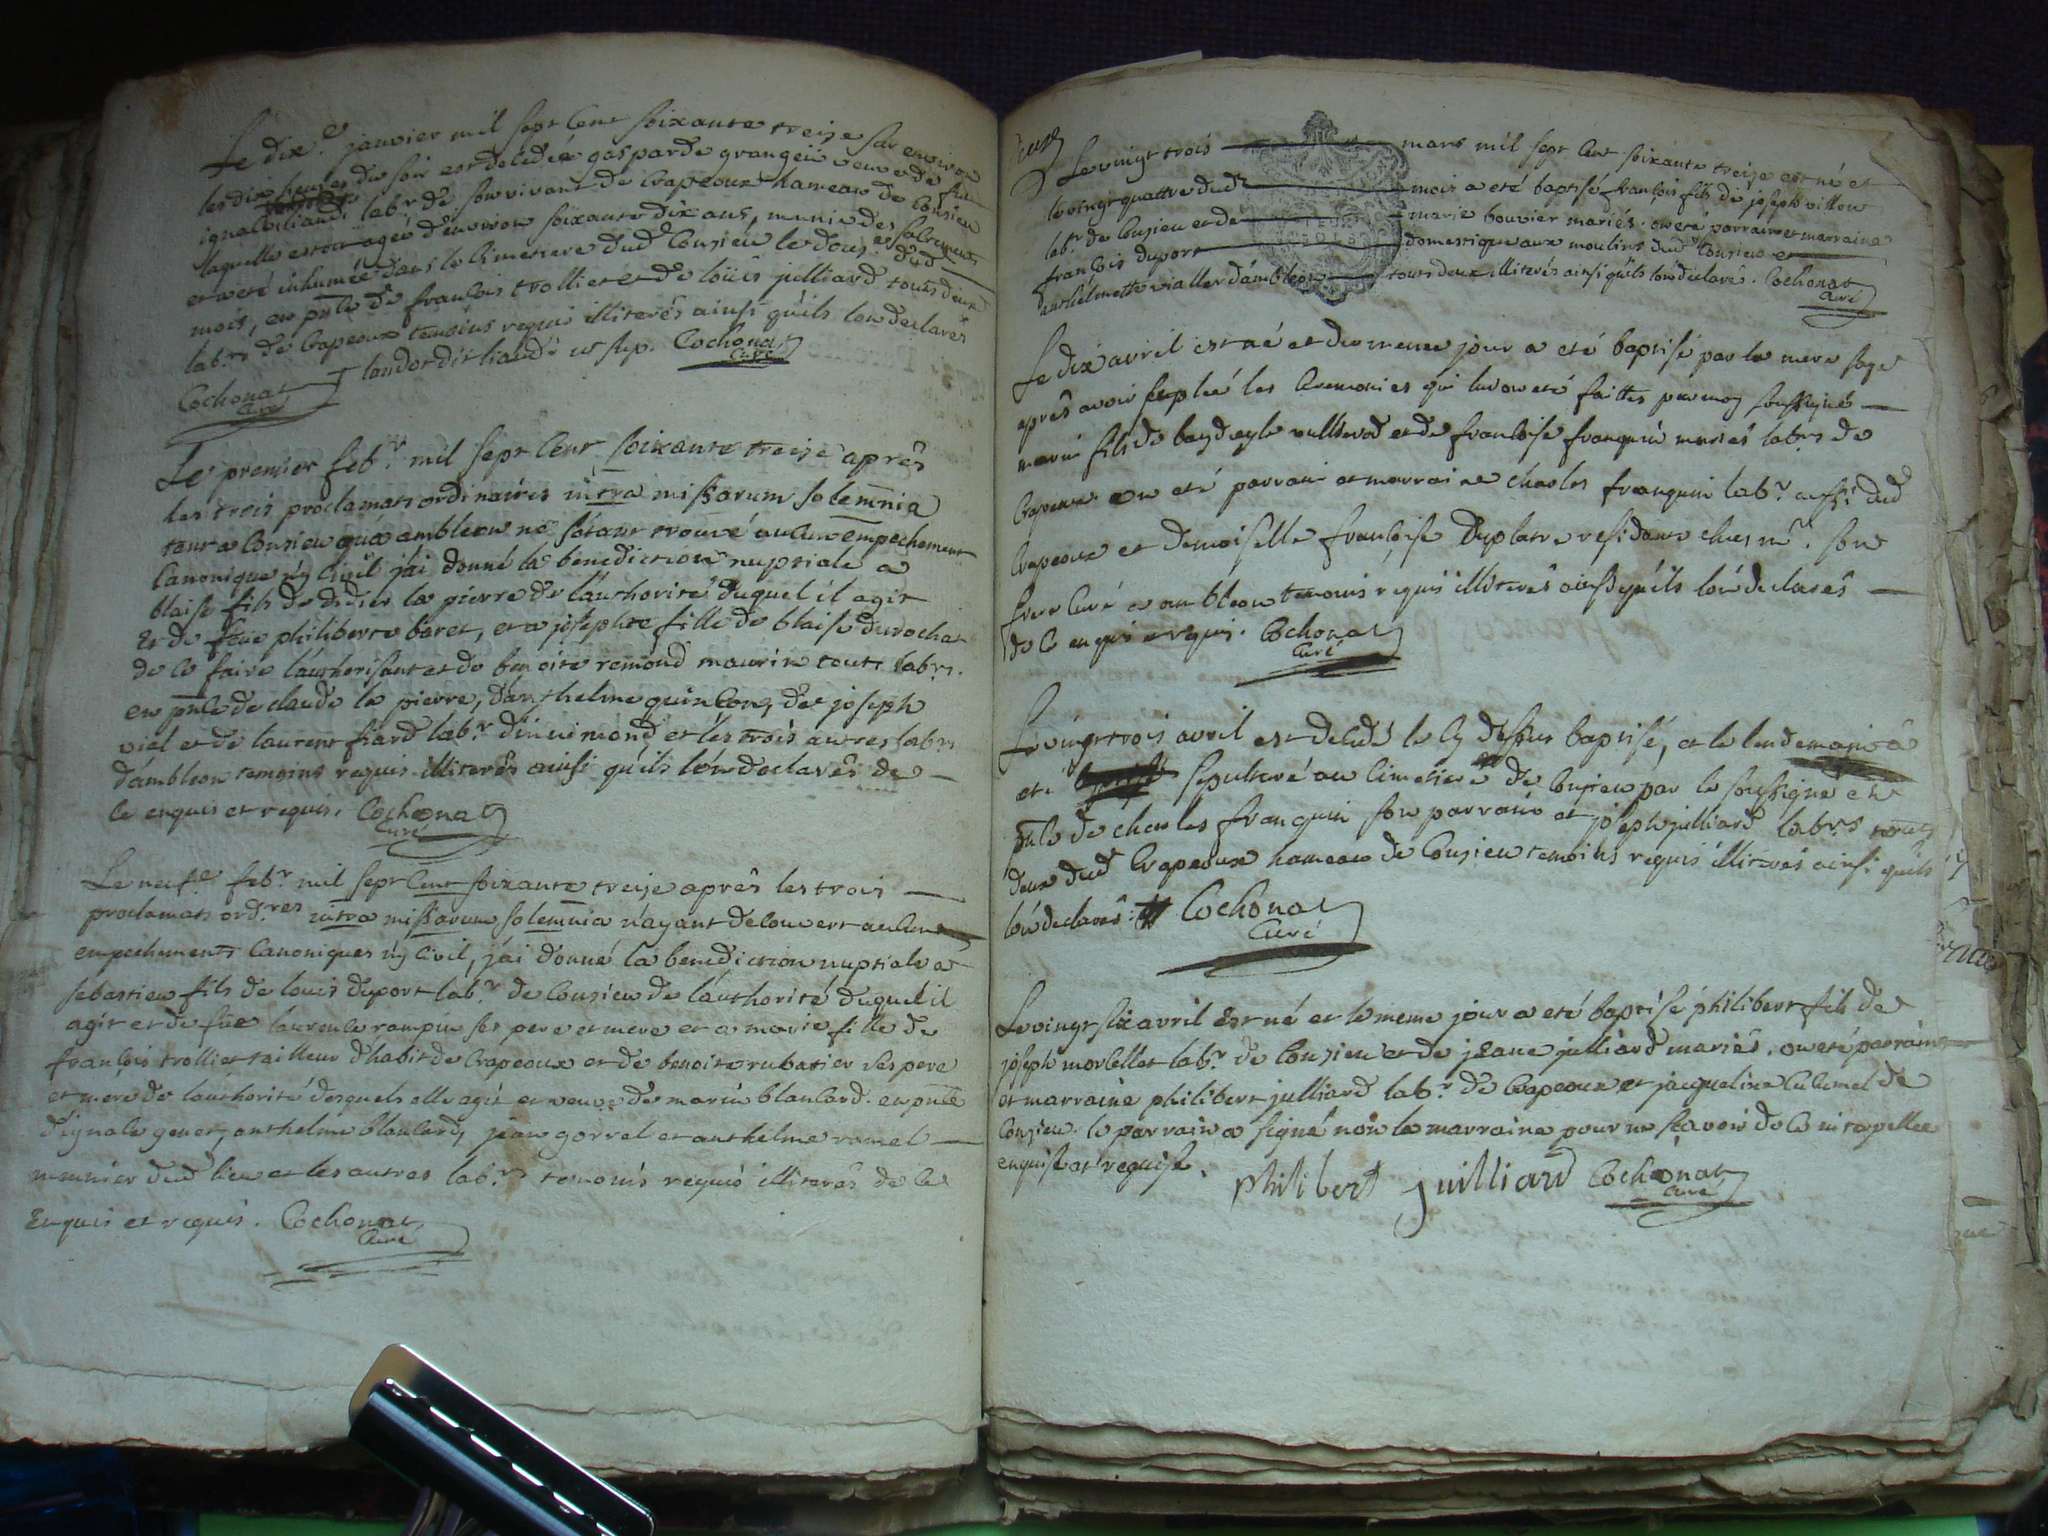 Le dix.e janvier mil sept cent soixante treize sur environ
les dix heures du soir est decedée gasparde grangeü veuve de feu
ignace liaud labr. de son vivant de Crapeoux hameau de Consieu
laquelle estoit agée d'environ soixante dix ans, munie des sacrements
et a eté inhumée dans le cimetiere dud Consieu le douz.e dud
mois, en pnce de francois trolliet et de loüis juilliard touts deux
labrs. de Crapeoux temoins requis illiterés ainsi qu'ils l'on declarés
Cochonat Curé
Cochonat Curé
Le premier febr. mil sept cent soixante treize aprês
les trois proclamats ordinaires intra missarum solemnia
tant a Consieu qu'a ambleon ne s'étant trouvé aucun empechement
Canonique ny Civil j'ai donné la benediction nuptiale a
blaise fils de didier la pierre de l'authorité duquel il agit
et de feüe philiberte baret, et a josephte fille de blaise durochat
de ce faire l'authorisant et de benoite remond maurin touts labrs.
en pnce de claude la pierre, d'anthelme quinson, de joseph
viel et de laurent fiard labr. d'inimond et les trois autres labrs
d'ambleon temoins requis illiterês ainsi qu'ils l'on declarês de
ce enquis et requis. Cochonat
Curé
Le neuf.e febr. mil sept cent soixante treize aprês les trois
proclamats ord.res intra missarum solemnia n'ayant decouvert aucuns
empechements Canoniques ny Civil, j'ai donné la benediction nuptiale a
sebastien fils de louis duport labr. de Consieu de l'authorité duquel il
agit et de füe laurence rampin ses pere et mere et a marie fille de
françois trolliet tailleur d'habit de Crapeoux et de benoite rubatier ses pere
et mere de l'authorité desquels elle agit et veuve de marin blanchard. en pnce
d'ignace genet, anthelme blanchard, jean gorrel et anthelme ramel
meunier dud lieu et les autres labr. temoins requis illiterês de ce
enquis et requis. Cochonat
Curé
Le vingt trois mars mil sept cent soixante treize est né et
le vingt quattre dud mois a eté baptisé françois fils de joseph villon
labr. de Consieu et de marie bouvier mariés. on eté parrain et marraine
françois duport domestique aux moulins dud Consieu et
anthelmette viallet d'ambleon touts deux illiterés ainsi qu'ils l'on declarés. Cochonat
Curé
Le dix avril est né et du meme jour a eté baptisé par la mere sage
aprês avoir suplée les ceremonies qui luy on eté faittes par moy soussigné
marin fils de et de francoise franquin mariés labrs. de
Crapeoux on eté parrain et marraine charles franquin labr. aussi dud
Crapeoux et demoiselle francoise Duplatre residante chez mr. son
frere Curé a ambleon temoins requis illiterês ainsy qu'ils l'on declarés
de ce enquis et requis. Cochonat
Curé
Le vingt trois avril est decedé le cy dessus baptisé, et le lendemain a
eté sepulturé au cimetiere de Consieu par le soussigné en
pnce de charles franquin son parrain et joseph juilliard labrs touts
deux dud Crapeoux hameau de Consieu temoins requis illiterés ainsi qu'ils
l'on declarés. Cochonat
Curé
Le vingt six avril est né et le meme jour a eté baptisé philibert fils de
joseph morlellet labr. de Consieu et de jeane juilliard mariês. on eté parrain
et marraine philibert juilliard labr. de Crapeoux et jacqueline de
Consieu. le parrain a signé non la marraine pour ne sçavoir de ce interpellée
enquise et requise.
philibert juilliard Cochonat
Curé